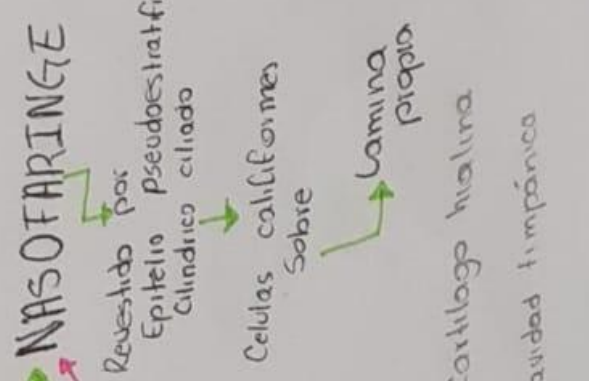 NASOFARINGE
Revestido por
Epitelio pseudoestratifi
Cilindrico ciliado
Celulas califormes
Sobre
Lamina
propia
Cartilago hialina
avidad timpánica